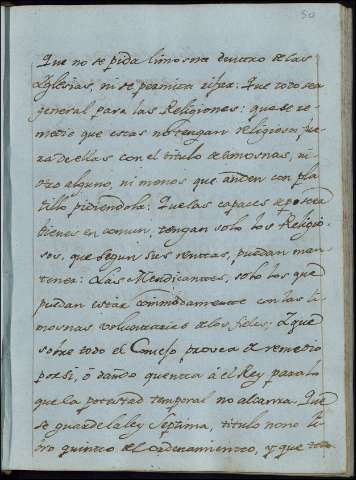 50
Que no se pida limosna dentro de las
Yglesias, ni se permita rifar: Que todo sea
general para las Religiones: que se re-
medio que estas no tengan Religiosos fue-
ra de ellas con el titulo de limosnas, ni
otro alguno, ni monos que anden con pla-
tillo pidiendola: Que las capaces de poseer
bienes en comun, tengan solo los Religio-
sos, que segun sus rentas, puedan man-
tener: Las Mendicantes, solo los que
puedan estar commodamente con las li-
mosnas voluntarias de los fieles; Y que
sobre todo el Consejo, provea de remedio
por si, ó dando quenta á el Rey, para lo
que la potestad temporal no alcanza. Que
se guarde la ley Septima, titulo nono li-
bro quinto de el Ordenamiento, y que